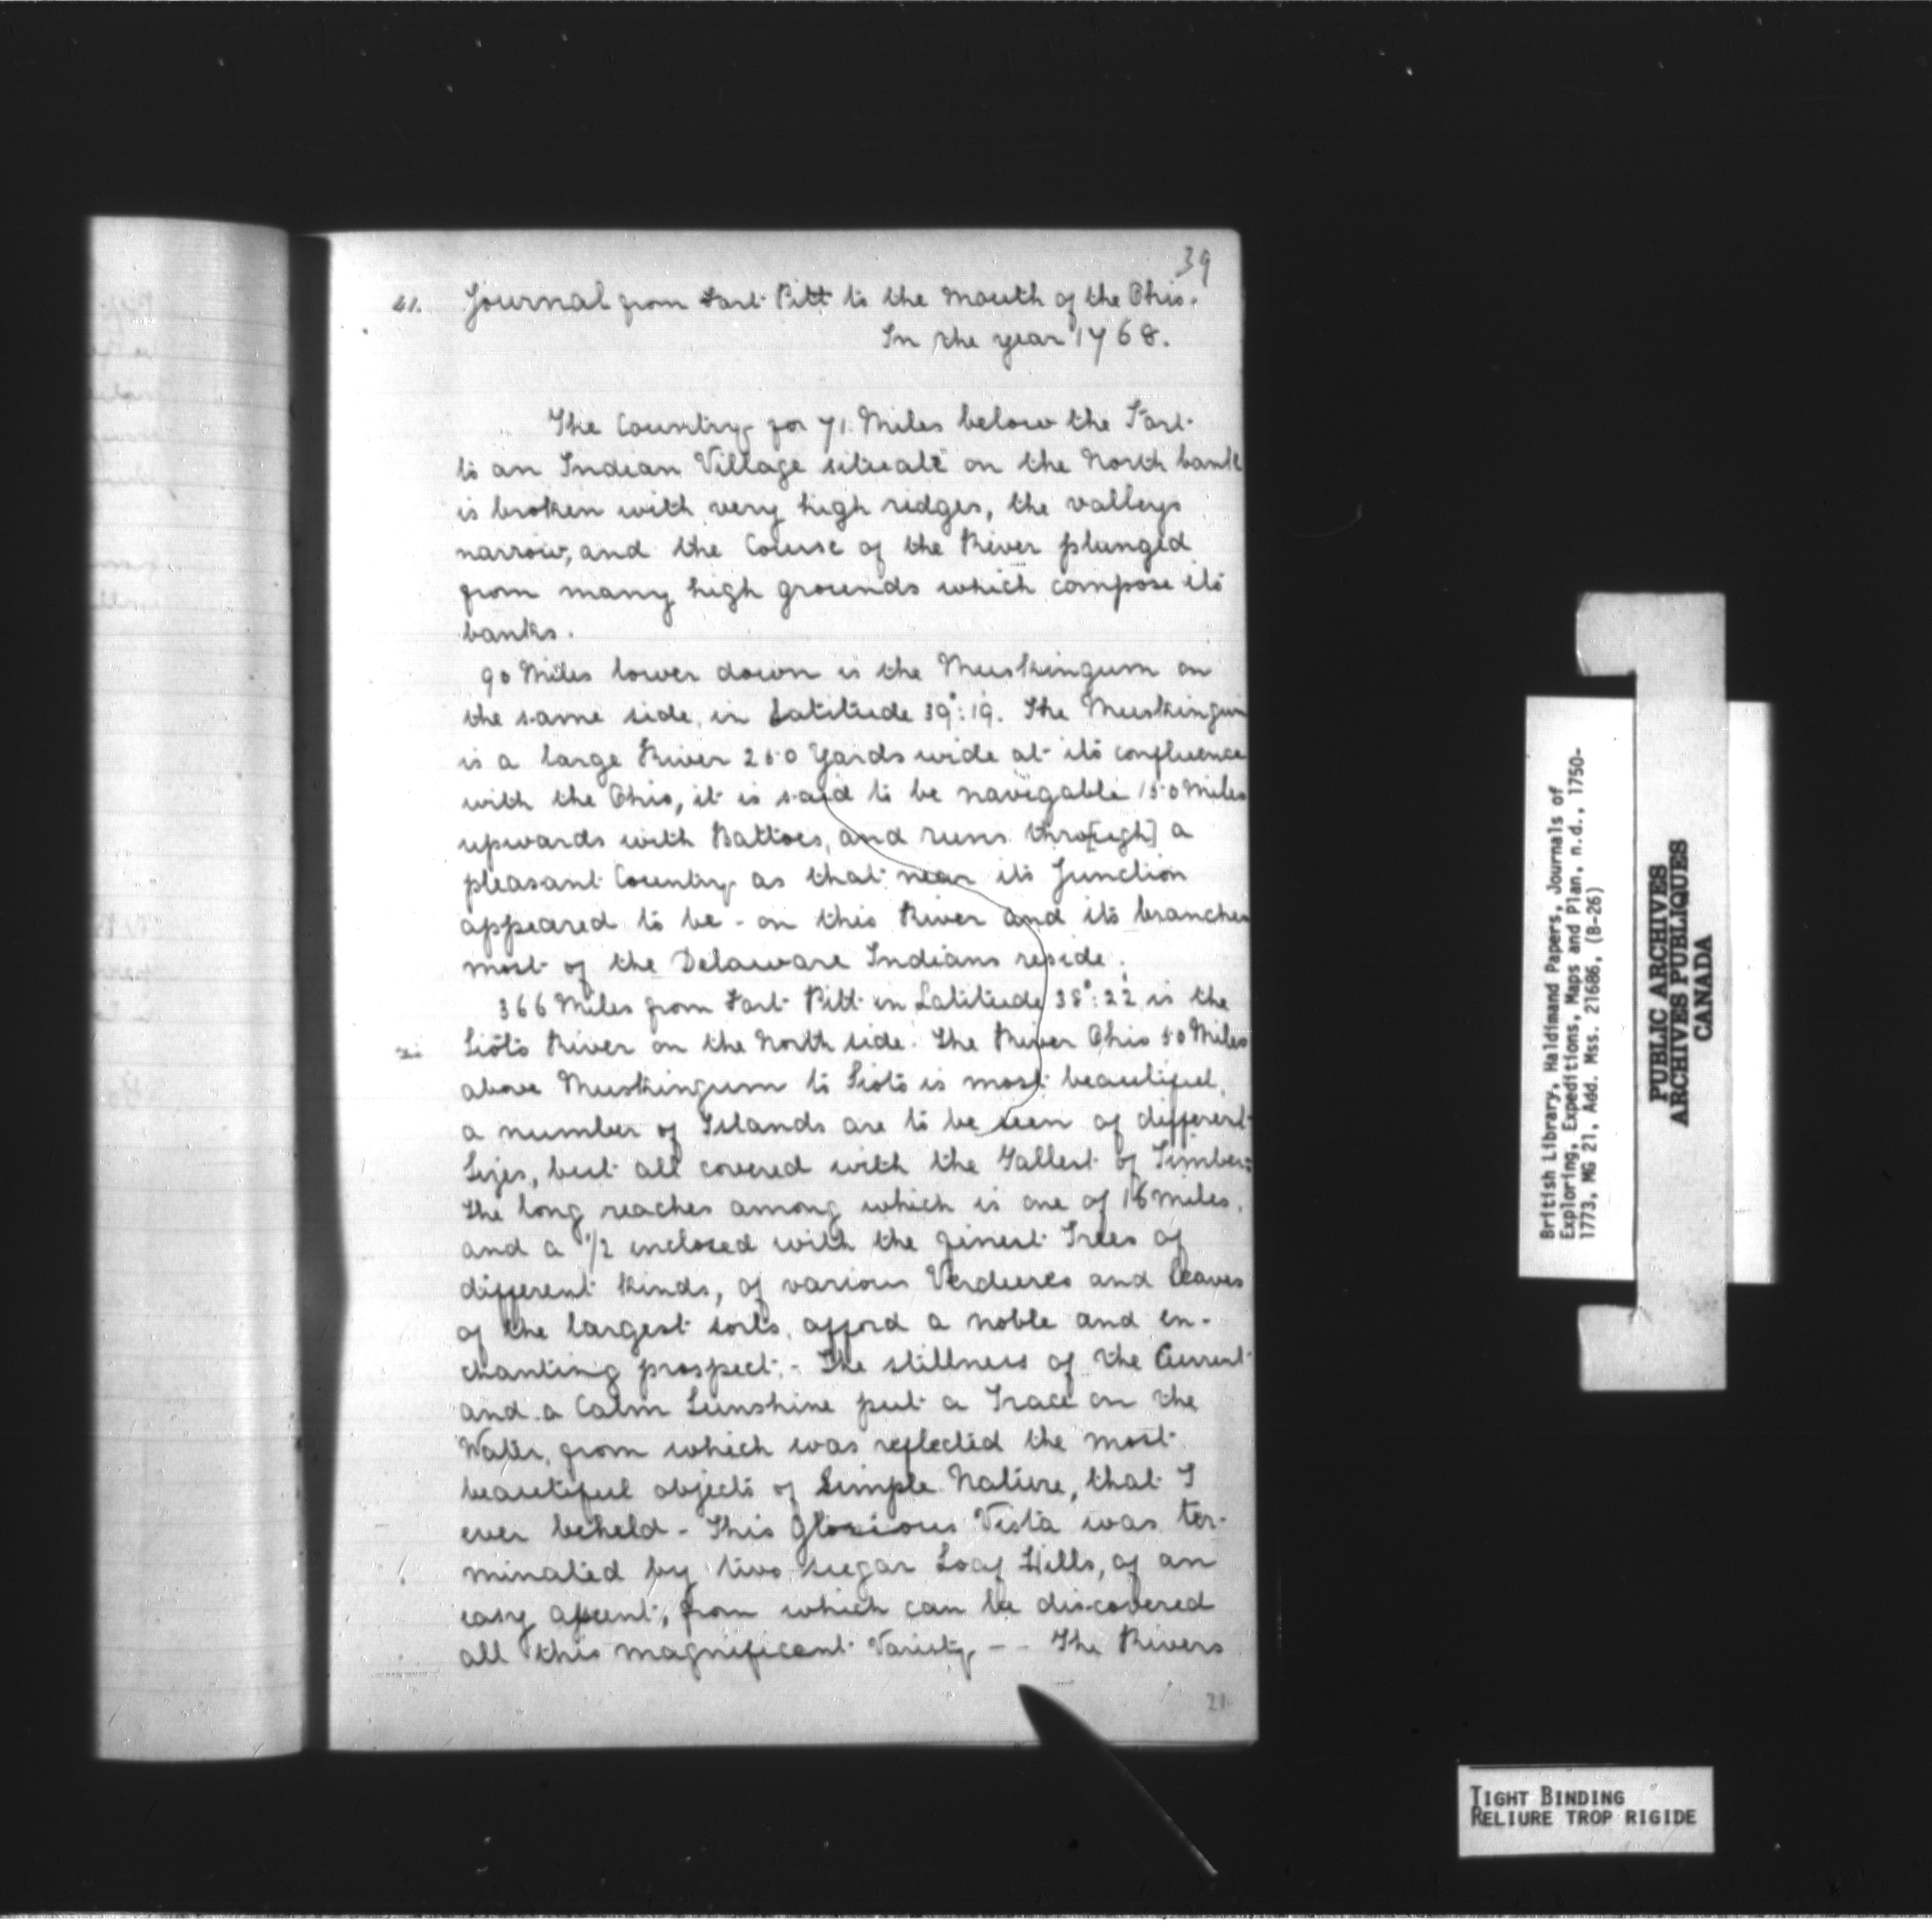 39
41. Journal from Fort Pitt to the Mouth of the Ohio.
In the year 1768.
The Country for 71 Miles below the Fort
to an Indian Village situate on the North bank
is broken with very high ridges, the valleys
narrow, and the Course of the River plunged
from many high grounds which compose its
banks.
90 Miles lower down is the Muskingum on
the same side, in Latitude 39°:19. The Muskingum
is a large River 250 Yards wide at its confluence
with the Ohio, it is said to be navigable 150 Miles
upwards with Battoes, and runs thro[ugh] a
pleasant Country as that near its Junction
appeared to be - on this River and its branches
most of the Delaware Indians reside.
366 Miles from Fort Pitt in Latitude 38°:22' is the
Sioto River on the North side. The River Ohio 50 Miles
above Muskingum to Sioto is most beautiful,
a number of Islands are to be seen of different
Sizes, but all covered with the Tallest of Timber:
The long reaches among which is one of 16 miles,
and a 1/2 inclosed with the finest Trees of
different kinds, of various Verdures and leaves
of the largest sorts, afford a noble and en-
chanting prospect. - The stillness of the Current
and a Calm Sunshine put a Trace on the
Water, from which was reflected the most
beautiful objects of Simple Nature, that I
ever beheld - This Glorious Vista was ter-
minated by two sugar Loaf Hills, of an
easy ascent, from which can be discovered
all this magnificent Variety - - The Rivers
21
British Library, Haldimand Papers, Journals of
Exploring, Expeditions, Maps and Plan, n.d., 1750-
1773, MG 21, Add. Mss. 21686, (B-26)
PUBLIC ARCHIVES
ARCHIVES PUBLIQUES
CANADA
TIGHT BINDING
RELIURE TROP RIGIDE